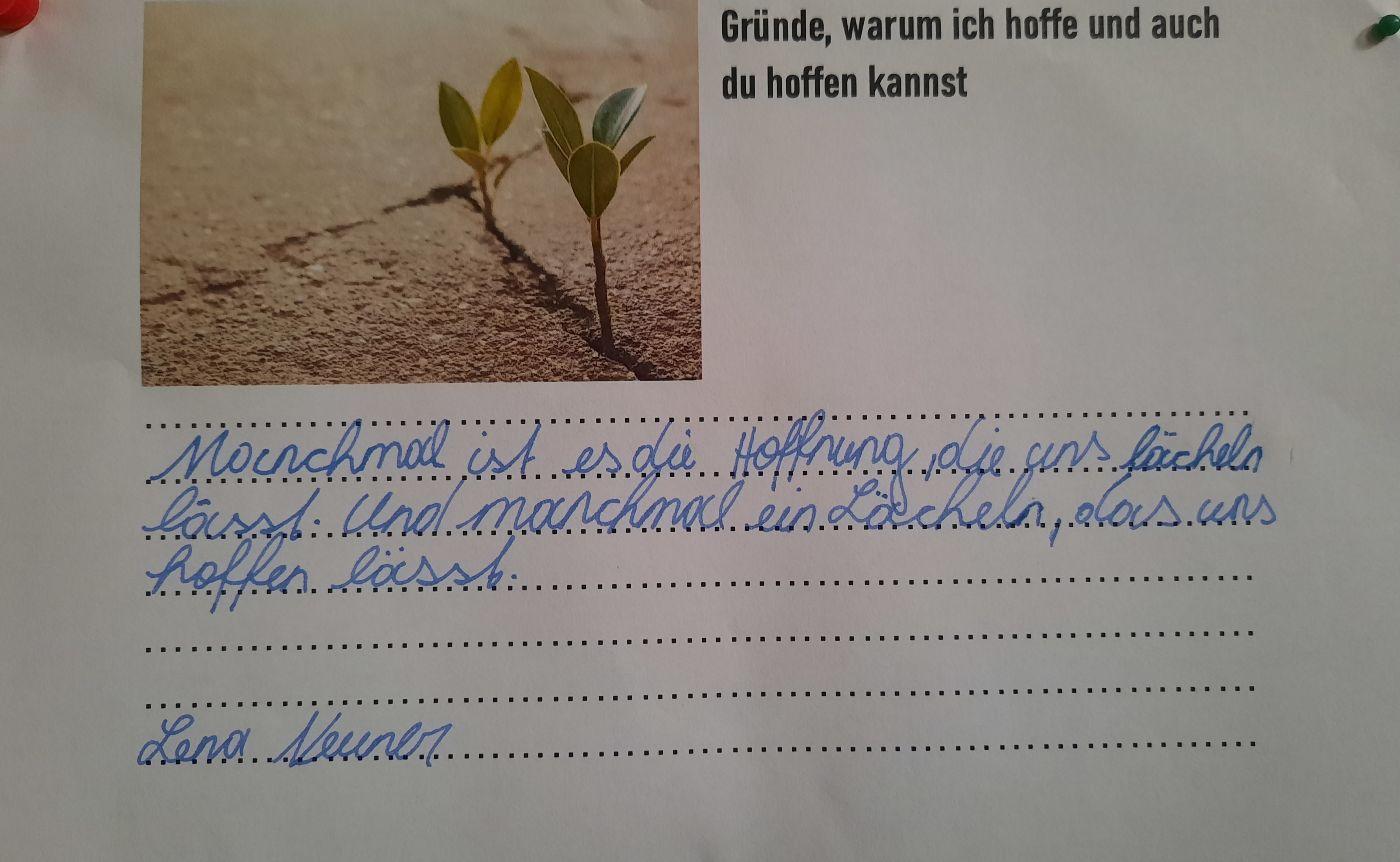 Gründe, warum ich hoffe und auch
du hoffen kannst
Manchmal ist es die Hoffnung, die uns lächeln
lässt. Und manchmal ein Lächeln, das uns
hoffen lässt.
Lena Neuner